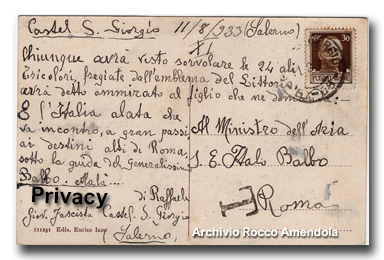 Castel S. Giorgio 11/8/933 (Salerno)
XI
Chiunque avrà visto sorvolare le 24 ali
tricolori, fregiate dall'emblema del Littorio
avrà detto ammirato al figlio che ne
È l'Italia alata che
va incontro, a gran passi
ai destini alti di Roma,
sotto la guida del Generalissimo
Balbo. Alalà...
di Raffaele
Giov. Fascista Castel S. Giorgio
(Salerno)
11251 Ediz. Enrico
Al Ministro dell'Aria
S. E. Italo Balbo
Roma
30
Privacy
Archivio Rocco Amendola